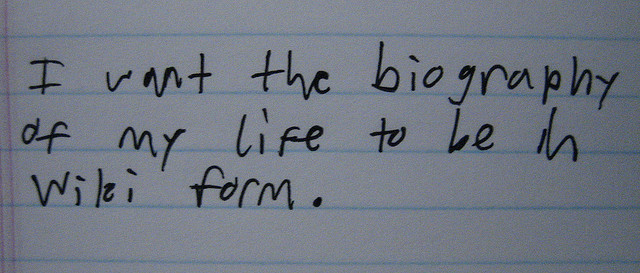 I want the biography
of my life to be in
Wiki form.